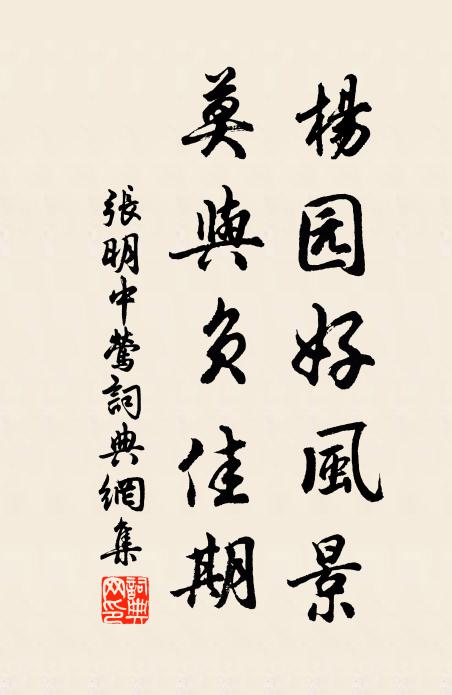 楊园好風景
莫與負佳期
張明中鶯詞典網集
詞典网印